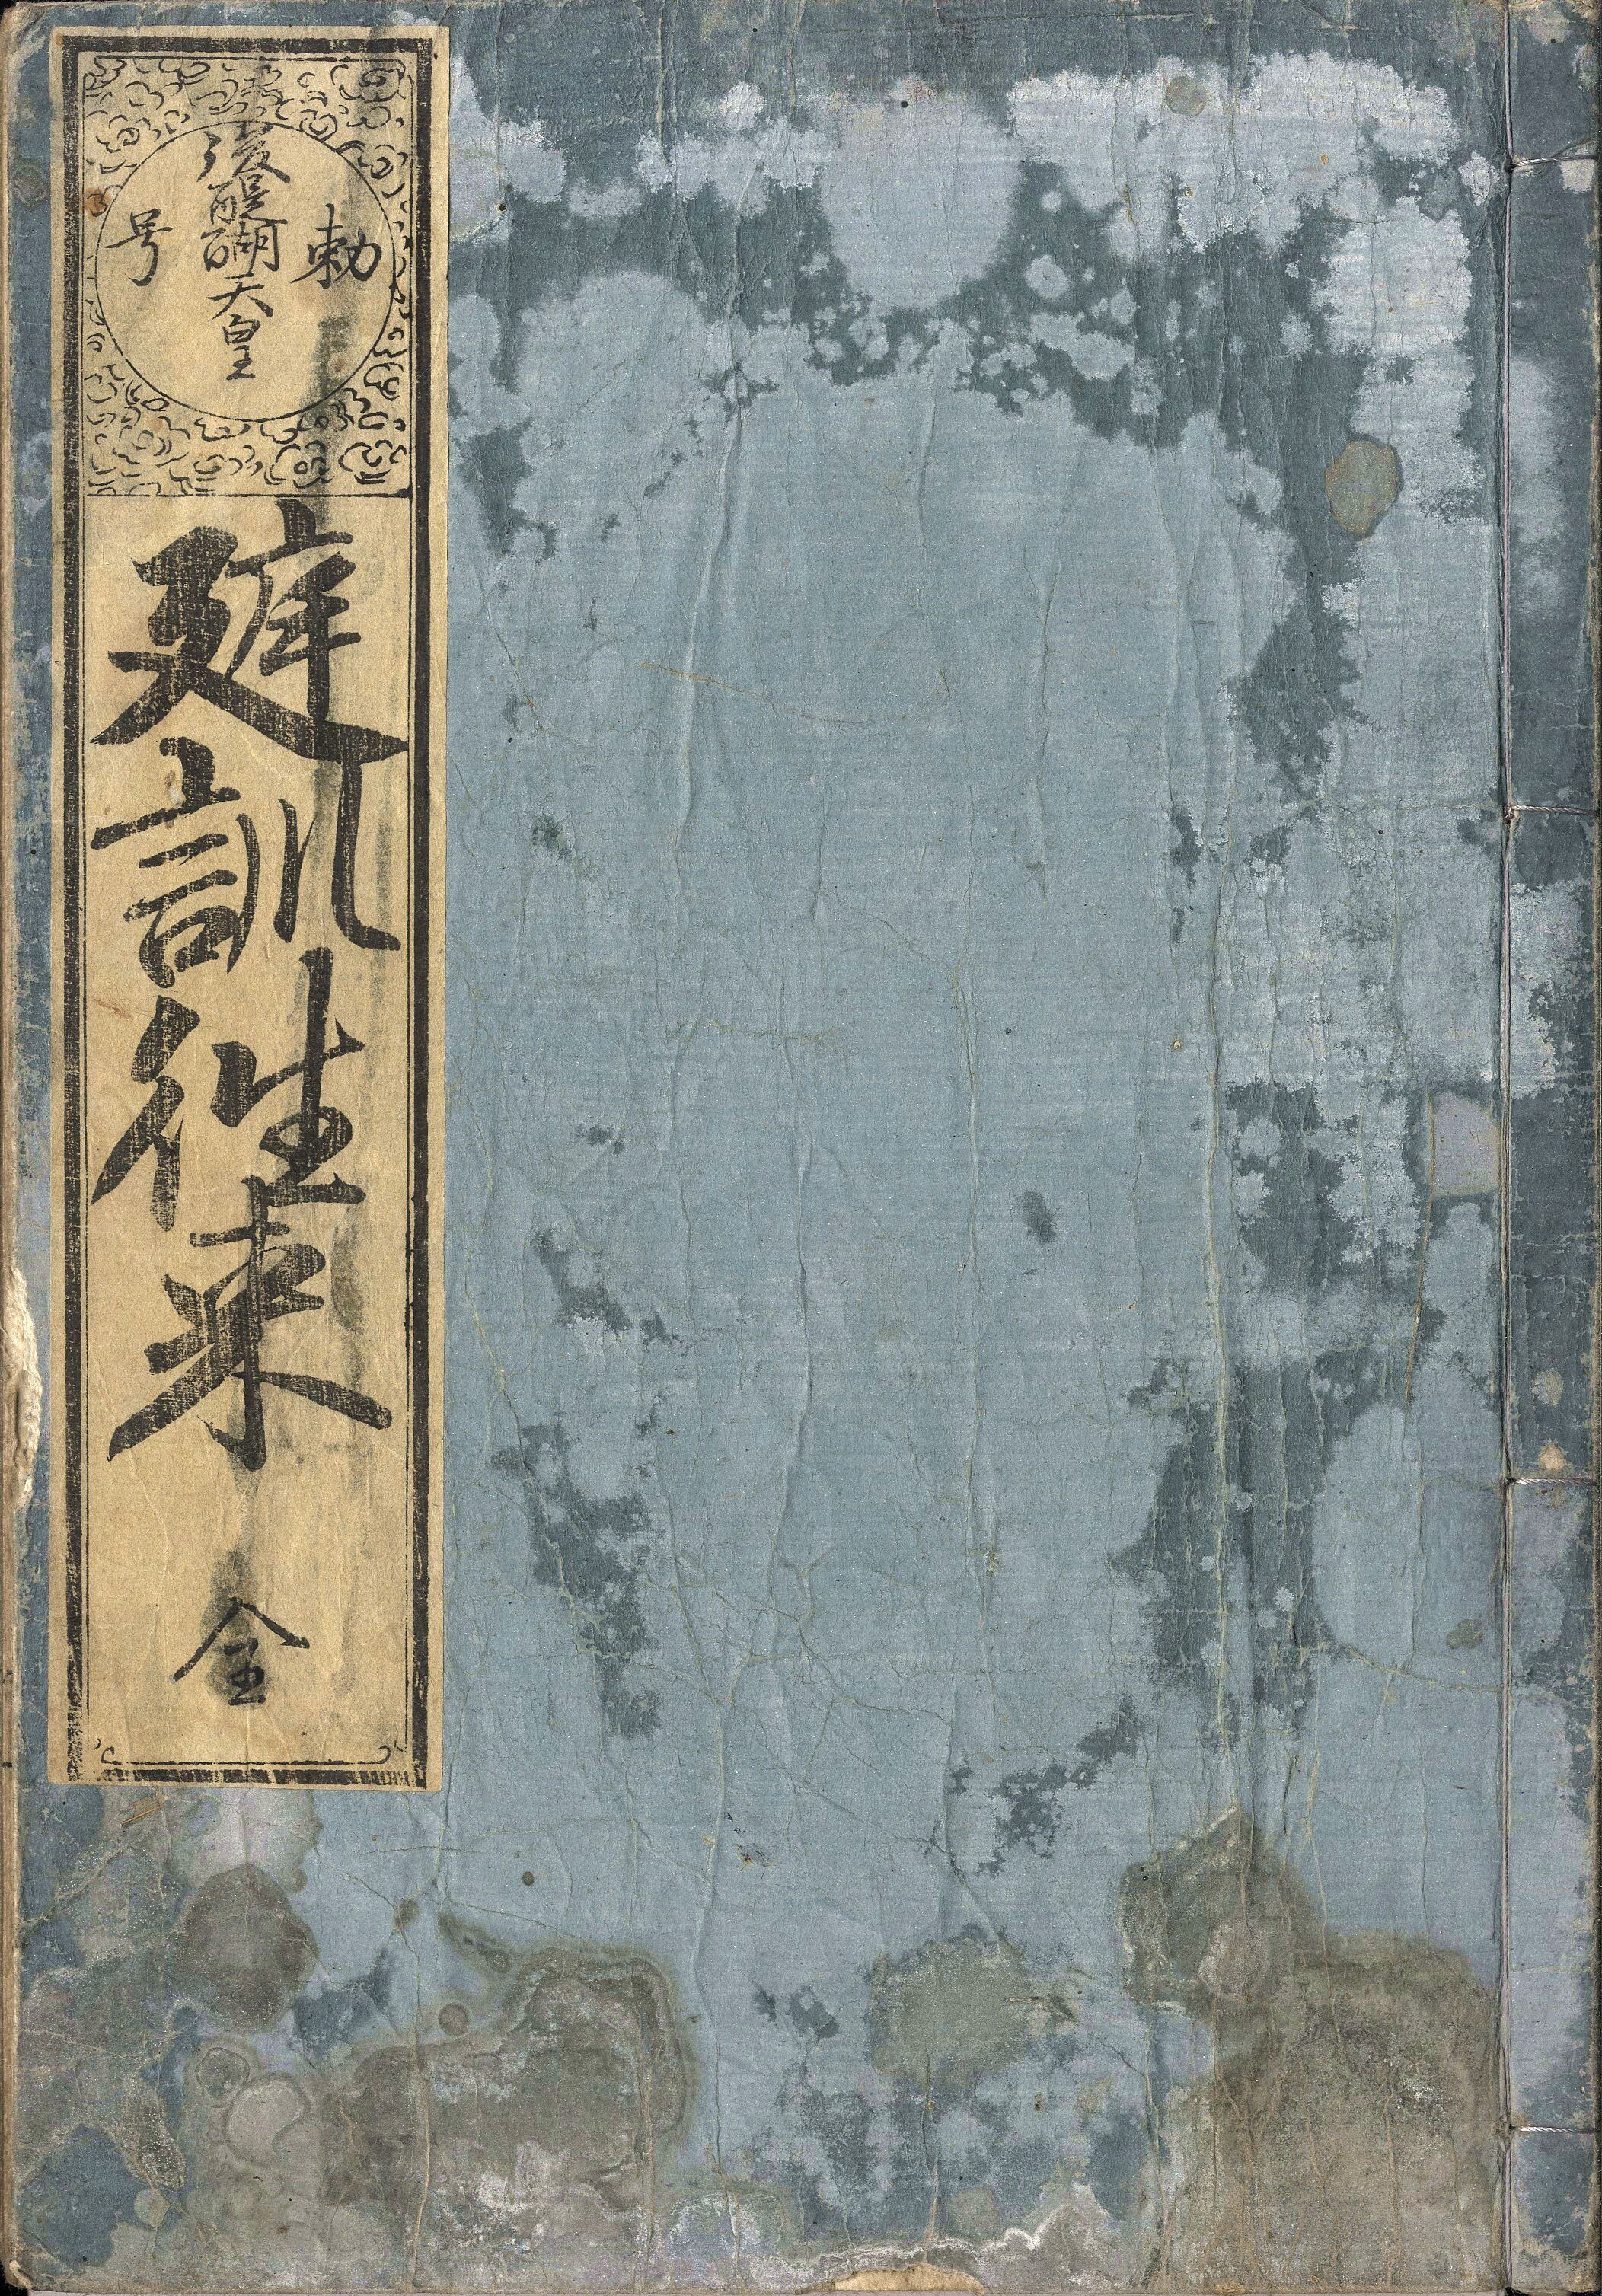 勅
後醍醐天皇
号
庭訓往来
全